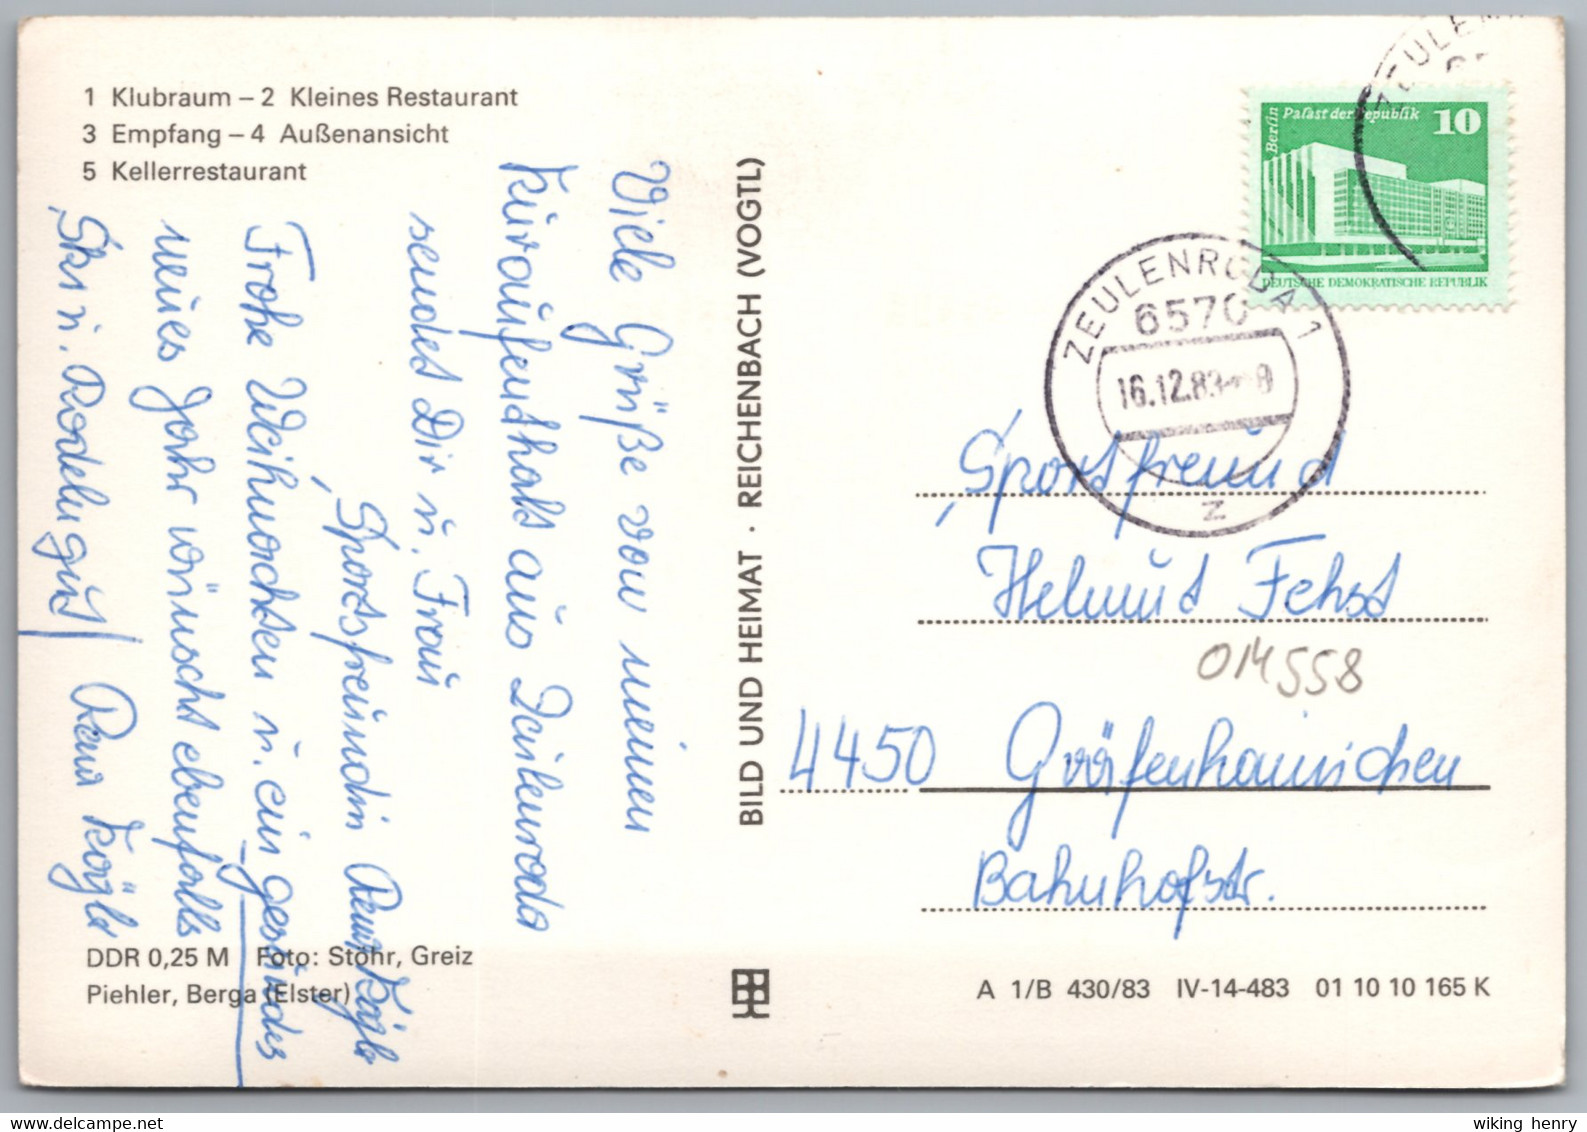 1 Klubraum – 2 Kleines Restaurant
3 Empfang – 4 Außenansicht
5 Kellerrestaurant
Viele Grüße von meinem
Kuraufenthalt aus Zeulenroda
sendet Dir u. Frau
Sportsfreundin Kögler
Frohe Weihnachten u. ein gesundes
neues Jahr wünscht ebenfalls
Ski u. Rodelngut Kögler
DDR 0,25 M Foto: Stöhr, Greiz
Piehler, Berga (Elster)
BILD UND HEIMAT · REICHENBACH (VOGTL)
Berlin Palast der Republik 10
DEUTSCHE DEMOKRATISCHE REPUBLIK
ZEULENRODA 1
6570
16.12.83
z
Sportfreund
Helmut Fehst
014558
4450 Gräfenhainichen
Bahnhofstr.
A 1/B 430/83 IV-14-483 01 10 10 165 K
wiking henry